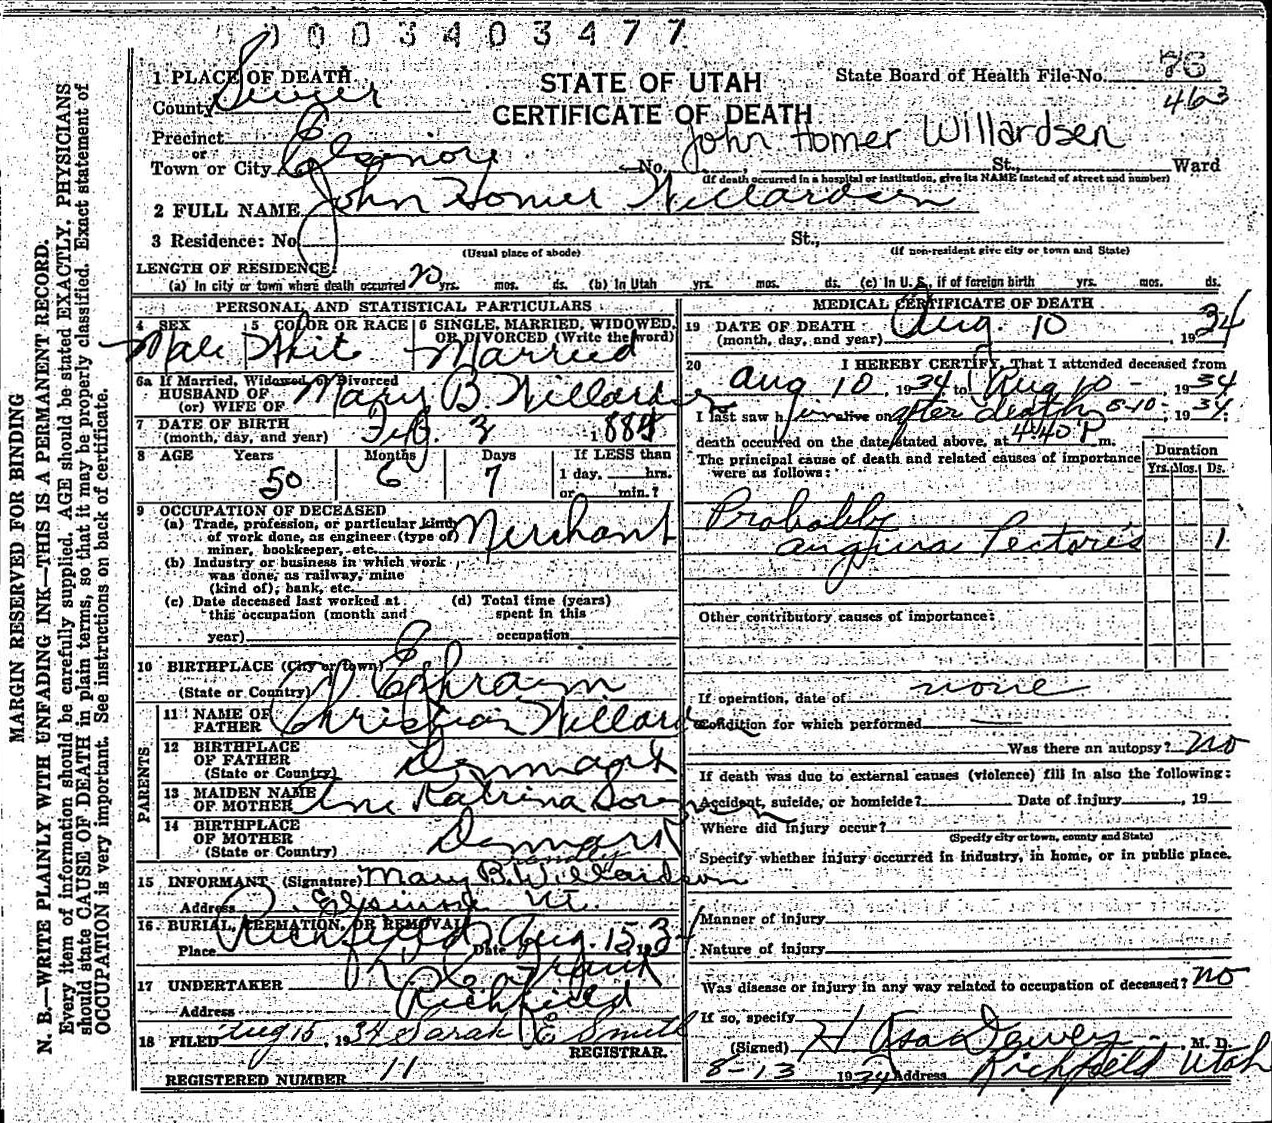 0003403477
MARGIN RESERVED FOR BINDING
N. B.—WRITE PLAINLY WITH UNFADING INK—THIS IS A PERMANENT RECORD.
Every item of information should be carefully supplied. AGE should be stated EXACTLY. PHYSICIANS
should state CAUSE OF DEATH in plain terms, so that it may be properly classified. Exact statement of
OCCUPATION is very important. See instructions on back of certificate.
1 PLACE OF DEATH
County Sevier
STATE OF UTAH
CERTIFICATE OF DEATH
State Board of Health File No. 76
463
Precinct
or
Town or City Elsinore
John Homer Willardsen
No. St., Ward
(If death occurred in a hospital or institution, give its NAME instead of street and number)
2 FULL NAME John Homer Willardsen
3 Residence: No. St.,
(Usual place of abode) (If non-resident give city or town and State)
LENGTH OF RESIDENCE:
(a) In city or town where death occurred 20 yrs. mos. ds. (b) In Utah yrs. mos. ds. (c) In U. S. if of foreign birth yrs. mos. ds.
PERSONAL AND STATISTICAL PARTICULARS
4 SEX Male
5 COLOR OR RACE White
6 SINGLE, MARRIED, WIDOWED, OR DIVORCED (Write the word) Married
6a If Married, Widowed, or Divorced
HUSBAND OF
(or) WIFE OF Mary B. Willardsen
7 DATE OF BIRTH
(month, day, and year) Feb. 3 1884
8 AGE Years 50 Months 6 Days 7
If LESS than
1 day, hrs.
or min.?
9 OCCUPATION OF DECEASED
(a) Trade, profession, or particular kind
of work done, as engineer (type of)
miner, bookkeeper, etc. Merchant
(b) Industry or business in which work
was done, as railway, mine
(kind of), bank, etc.
(c) Date deceased last worked at
this occupation (month and
year)
(d) Total time (years)
spent in this
occupation
10 BIRTHPLACE (City or town)
(State or Country) Ephraim
PARENTS
11 NAME OF
FATHER Christian Willardsen
12 BIRTHPLACE
OF FATHER
(State or Country) Denmark
13 MAIDEN NAME
OF MOTHER Ane Katrina Sorensen
14 BIRTHPLACE
OF MOTHER
(State or Country) Denmark
15 INFORMANT (Signature) Mary B. Willardson
Address Elsinore Ut.
16 BURIAL, CREMATION, OR REMOVAL
Place Richfield Date Aug. 15, 1934
17 UNDERTAKER
Address Richfield
18 FILED Aug 15, 1934 Sarah E Smith
REGISTRAR.
REGISTERED NUMBER 11
MEDICAL CERTIFICATE OF DEATH
19 DATE OF DEATH
(month, day, and year) Aug. 10 1934
20 I HEREBY CERTIFY, That I attended deceased from
Aug 10, 1934 to Aug 10 -, 1934
I last saw h im alive on after death 8-10, 1934
death occurred on the date stated above, at 4:40 P m.
The principal cause of death and related causes of importance
were as follows:
Duration
Yrs. Mos. Ds.
Probably
angina Pectoris 1
Other contributory causes of importance:
If operation, date of none
Condition for which performed
Was there an autopsy? no
If death was due to external causes (violence) fill in also the following:
Accident, suicide, or homicide? Date of injury , 19
Where did injury occur?
(Specify city or town, county and State)
Specify whether injury occurred in industry, in home, or in public place.
Manner of injury
Nature of injury
Was disease or injury in any way related to occupation of deceased? no
If so, specify
(Signed) H Asa Dewey -, M. D.
8-13 1934 Address Richfield Utah